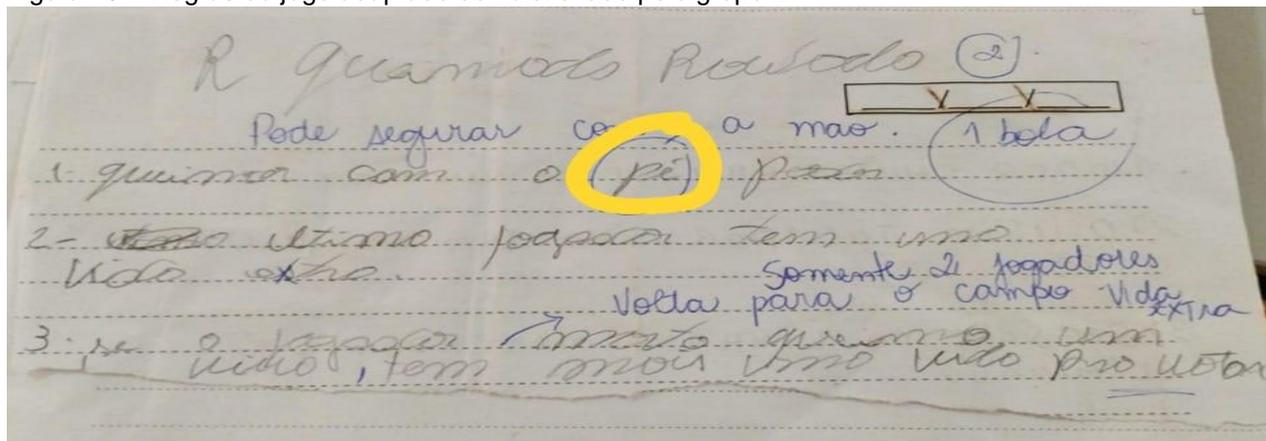 R queimado Rousado 2
Pode segurar com a mao. 1 bola
1- queimar com o (pé)
2- ultimo jogador tem uma
vida extra.
Somente 2 jogadores
Volta para o campo Vida
extra
3- se o jogador morto queima um
vivo, tem mais uma vida pro